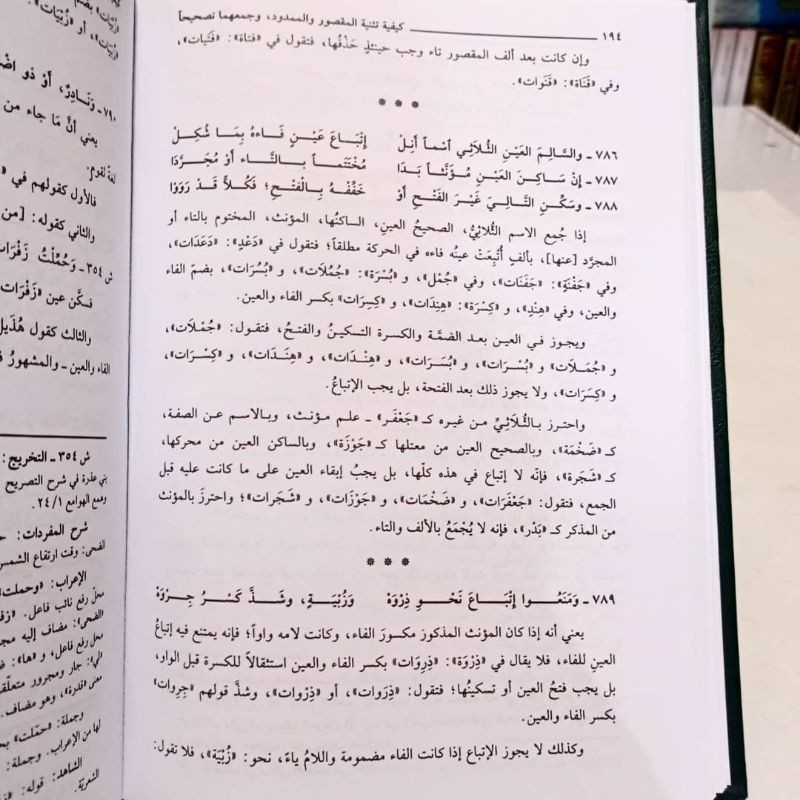 ١٩٤ كيفية تثنية المقصور والممدود، وجمعهما تصحيحاً
وإن كانت بعد ألف المقصور تاء وجب حينئذٍ حَذْفُها، فتقول في «فتاة»: «فَتَيات»،
وفي «قَنَاة»: «قَنَوات».
* * *
٧٨٦ ـ والسَّالِمَ العَيْنِ الثُّلَاثِي ٱسْماً أَنِلْ إِتْبَاعَ عَيْنٍ فَاءَهُ بِمَا شُكِلْ
٧٨٧ ـ إِنْ سَاكِنَ العَيْنِ مُؤَنَّثاً بَدَا مُخْتَتَماً بِالتَّاءِ أَوْ مُجَرَّدَا
٧٨٨ ـ وسَكِّنِ التَّالِيَ غَيْرَ الفَتْحِ أَوْ خَفِّفْهُ بِالْفَتْحِ؛ فَكُلًّا قَدْ رَوَوْا
إذا جُمع الاسم الثُّلاثِيُّ، الصحيحُ العينِ، الساكنُها، المؤنث، المختوم بالتاء أو
المجرَّد [عنها]، بألفٍ أُتْبِعَتْ عينُه فاءه في الحركة مطلقاً؛ فتقول في «دَعْدٍ»: «دَعَدَات»،
وفي «جَفْنَةٍ»: «جَفَنَات»، وفي «جُمْل»، و «بُسْرَة»: «جُمُلَات»، و «بُسُرَات»، بضمّ الفاء
والعين، وفي «هِنْدٍ»، و «كِسْرَة»: «هِنِدَات»، و «كِسِرَات» بكسر الفاء والعين.
ويجوز في العين بعد الضمَّة والكسرة التسكينُ والفتحُ، فتقول: «جُمْلَات»،
و «جُمَلَات» و «بُسْرَات»، و «بُسَرَات»، و «هِنْدَات»، و «هِنَدَات»، و «كِسْرَات»،
و «كِسَرَات»، ولا يجوز ذلك بعد الفتحة، بل يجب الإتباعُ.
واحترز بالثُّلَاثِيِّ من غيره كـ «جَعْفَر» ـ علم مؤنث، وبالاسم عن الصفة،
كـ «ضَخْمَة»، وبالصحيح العين من معتلها كـ «جَوْزَة»، وبالساكن العين من محركها،
كـ «شَجَرة»، فإنّه لا إتباع في هذه كلّها، بل يجبُ إبقاء العين على ما كانت عليه قبل
الجمع، فتقول: «جَعْفَرَات»، و «ضَخْمَات»، و «جَوْزَات»، و «شَجَرات»؛ واحترز بالمؤنث
من المذكر كـ «بَدْر»، فإنه لا يُجْمَعُ بالألف والتاء.
* * *
٧٨٩ ـ وَمَنَعُوا إِتْبَاعَ نَحْوِ ذِرْوَهْ وَزُبْيَةٍ، وشَذَّ كَسْرُ جِرْوَهْ
يعني أنه إذا كان المؤنث المذكورَ مكسورَ الفاء، وكانت لامه واواً؛ فإنه يمتنع فيه إتباعُ
العينِ للفاء، فلا يقال في «ذِرْوَة»: «ذِرِوَات» بكسر الفاء والعين استثقالاً للكسرة قبل الواو،
بل يجب فتحُ العين أو تسكينُها؛ فتقول: «ذِرَوات»، أو «ذِرْوات»، وشذَّ قولهم «جِرِوات»
بكسر الفاء والعين.
وكذلك لا يجوز الإتباع إذا كانت الفاء مضمومة واللامُ ياءً، نحو: «زُبْيَة»، فلا تقول:
«زُبَيَات»، أو «زُبْيَات».
٧٩٠ ـ وَنَادِرٌ، أَوْ ذو
يعني أنَّ ما جاء من
لغةٌ لقوم.
فالأول كقولهم في
والثاني كقوله: [من
ش ٣٥٤ ـ وَحُمِّلْتُ زَفْرَاتِ
فسكَّن عين «زَفْرَات
والثالث كقول هُذَيل
الفاء والعين ـ والمشهورُ
ش ٣٥٤ ـ التخريج:
بني عذرة في شرح التصريح
وهمع الهوامع ٢٤/١.
شرح المفردات:
الضحى: وقت ارتفاع الشمس
الإعراب: «وحملت»
محلّ رفع نائب فاعل.
الضحى»: مضاف إليه
محل رفع فاعل، و «ها»:
لي»: جار ومجرور متعلّق
معنى «قدرة»، وهو مضاف.
وجملة: «حمّلت»
لها من الإعراب. وجملة:
الشاهد: قوله:
الشعريّة.